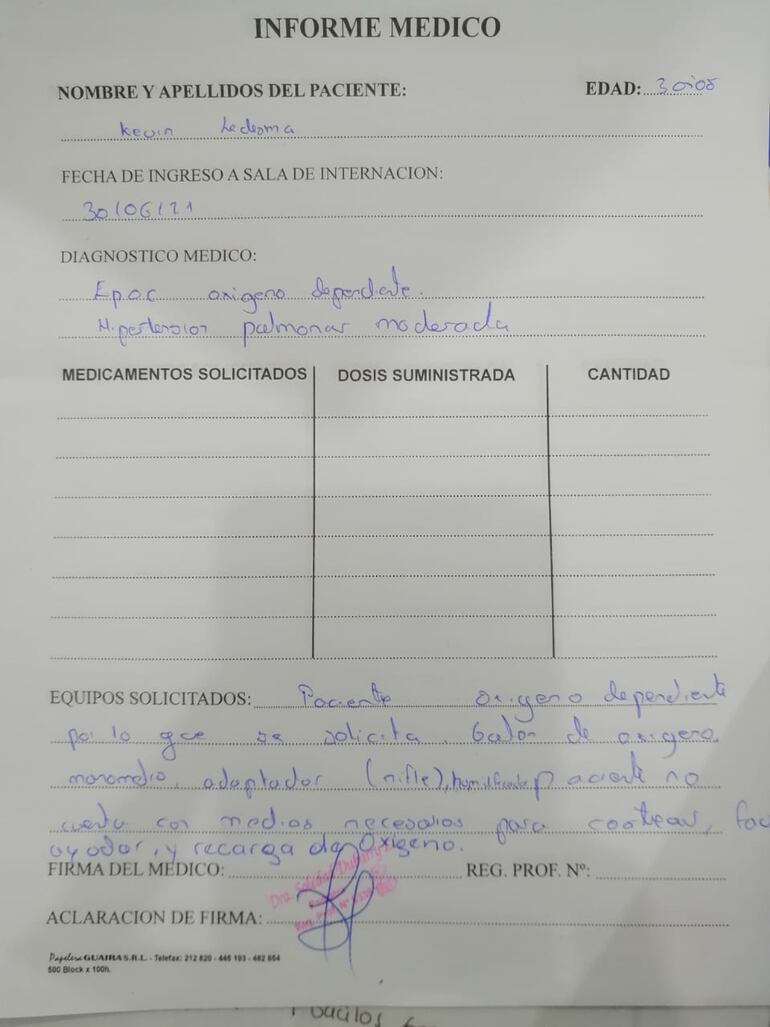 INFORME MEDICO
NOMBRE Y APELLIDOS DEL PACIENTE: EDAD:
Kevin Ledesma
FECHA DE INGRESO A SALA DE INTERNACION:
30/06/21
DIAGNOSTICO MEDICO:
Epoc oxigeno dependiente.
Hipertension pulmonar moderada
MEDICAMENTOS SOLICITADOS DOSIS SUMINISTRADA CANTIDAD
EQUIPOS SOLICITADOS: Paciente oxigeno dependiente
por lo que se solicita Balon de oxigeno
manometro, adaptador (nifle), paciente no
cuenta con medios necesarios para costear, fac
ayudar, y recarga de Oxigeno.
FIRMA DEL MÉDICO: REG. PROF. Nº:
Dra. Soledad
ACLARACION DE FIRMA:
Papelera GUAIRA S.R.L. - Telefax: 212 820 - 445 193 - 482 854
500 Block x 100h.
bacilos